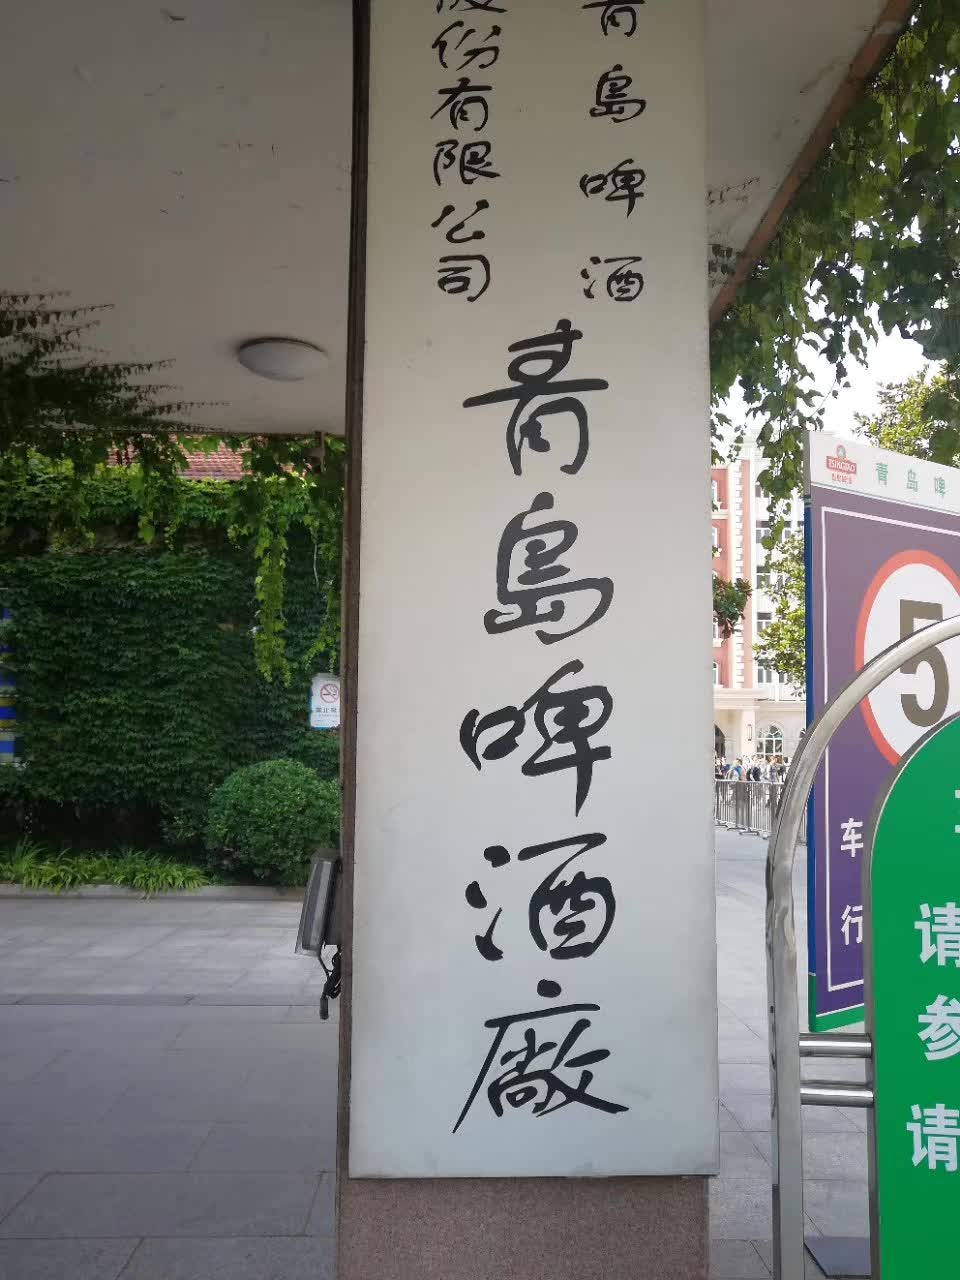 青島啤酒
股份有限公司
青島啤酒廠
TSINGTAO
青岛啤
5
车
行
请
参
请